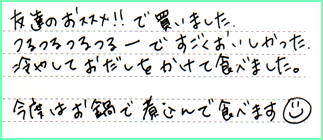 友達のおススメ!!で買いました.
つるつるつるつるーですごくおいしかった.
冷やしておだしをかけて食べました。
今度はお鍋で煮込んで食べます